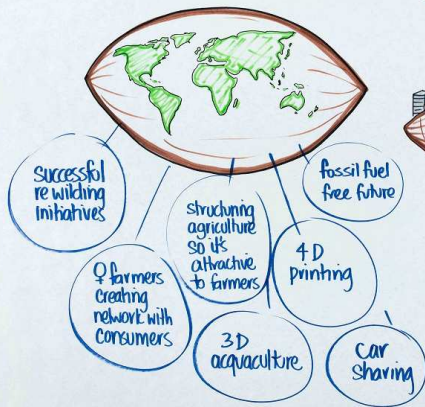 successful
re wilding
initiatives
♀ farmers
creating
network with
consumers
structuring
agriculture
so it's
attractive
to farmers
3D
acquaculture
4D
printing
fossil fuel
free future
car
sharing